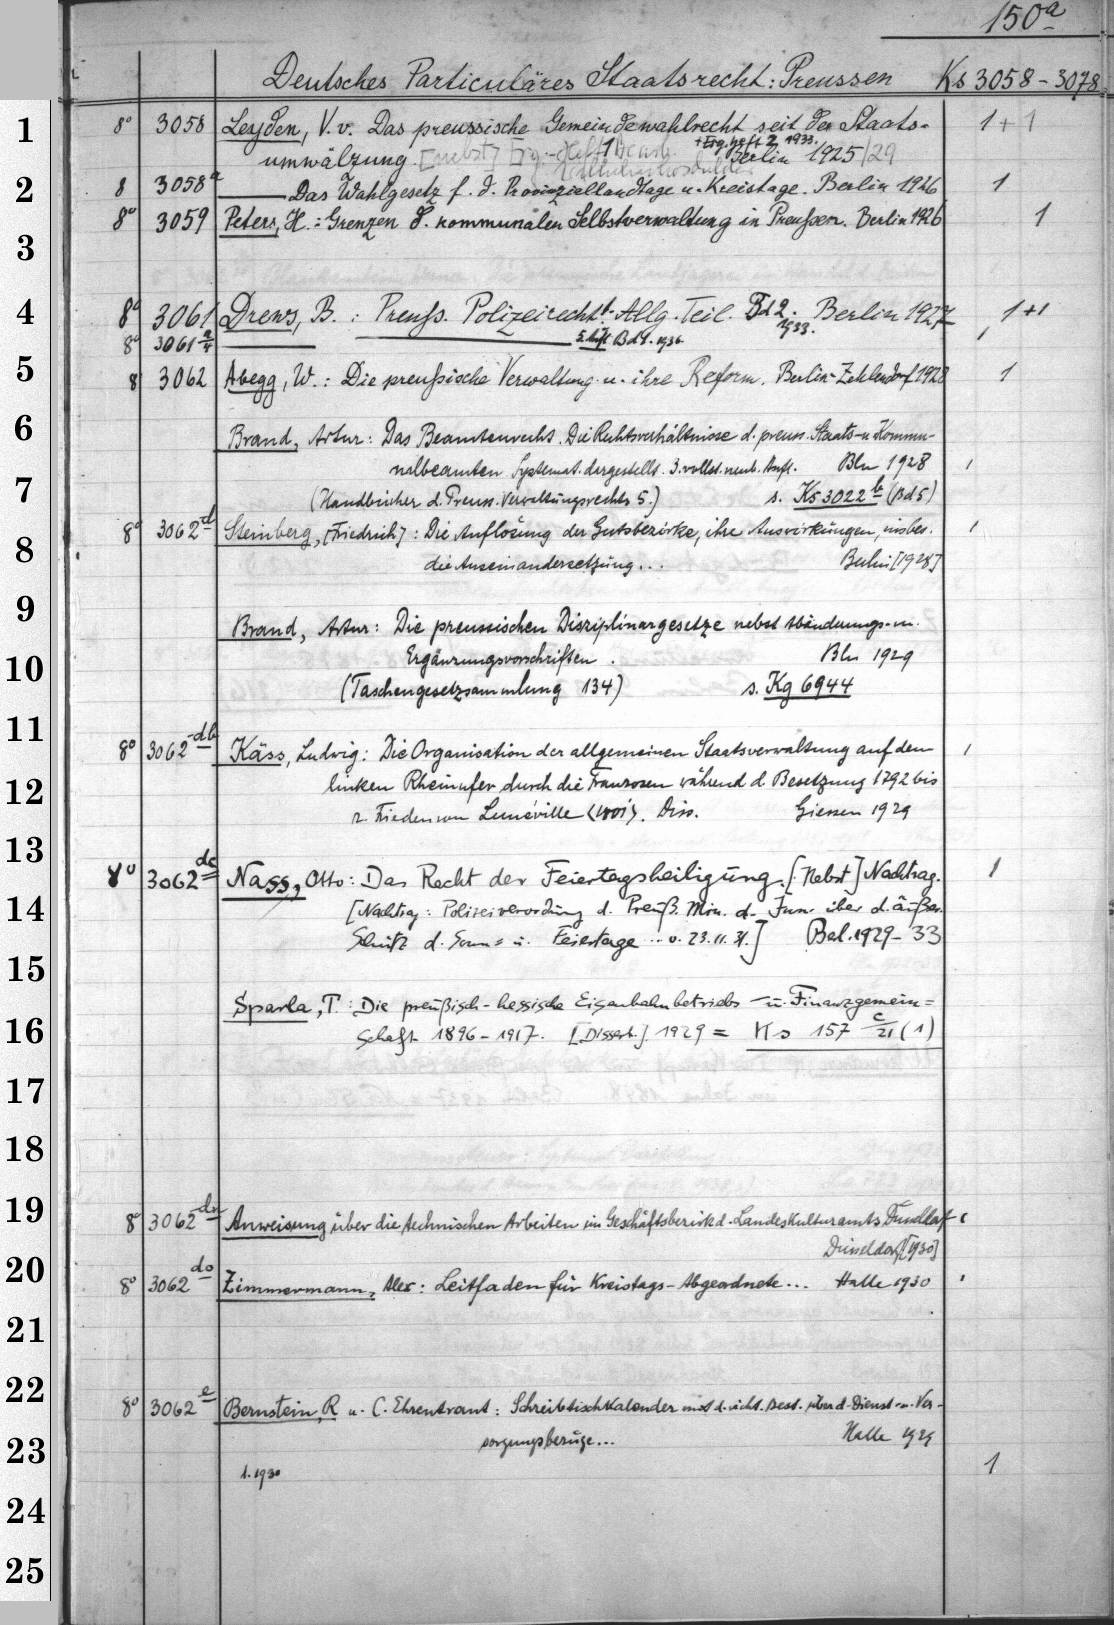 150a
Deutsches Particuläres Staatsrecht: Preussen Ks 3058-3078
1 8° 3058 Leyden, V. v. Das preussische Gemeindewahlrecht seit der Staats- 1 + 1
umwälzung. [nebst] Erg.-Heft 1 + Erg. heft 2 1933. Berlin 1925/29
2 8 3058a — Das Wahlgesetz f. d. Provinziallandtage u. Kreistage. Berlin 1926 1
8° 3059 Peters, H.: Grenzen d. kommunalen Selbstverwaltung in Preußen. Berlin 1926 1
3
4 8° 3061 Drews, B. : Preuß. Polizeirecht. Allg. Teil. Bd 2. 1933. Berlin 1927 1+1
8° 3061 a/4 — 5. Aufl. Bd 1. 1936
5 8 3062 Abegg, W.: Die preußische Verwaltung u. ihre Reform. Berlin-Zehlendorf 1928 1
6 Brand, Artur: Das Beamtenrecht. Die Rechtsverhältnisse d. preuss. Staats- u. Kommu-
nalbeamten systemat. dargestellt. 3. vollst. neub. Aufl. Bln 1928
7 (Handbücher d. Preuss. Verwaltungsrechts 5.) s. Ks 3022 b (Bd 5)
8° 3062 d Steinberg, [Friedrich]: Die Auflösung der Gutsbezirke, ihre Auswirkungen, insbes.
8 die Auseinandersetzung... Berlin [1928]
9
Brand, Artur: Die preussischen Disziplinargesetze nebst Abänderungs- u.
10 Ergänzungsvorschriften. Bln 1929
(Taschengesetzsammlung 134) s. Kg 6944
11
8° 3062 db Käss, Ludwig: Die Organisation der allgemeinen Staatsverwaltung auf dem
12 linken Rheinufer durch die Franzosen während d. Besetzung 1792 bis
z. Frieden von Lunéville (1801). Diss. Giessen 1929
13
8° 3062 dc Nass, Otto: Das Recht der Feiertagsheiligung. [Nebst] Nachtrag. 1
14 [Nachtrag: Polizeiverordnung d. Preuß. Min. d. Inn. über d. äußer.
Schutz d. Sonn- u. Feiertage ... v. 23.11.31.] Bel. 1929-33
15
Sparla, T.: Die preußisch-hessische Eisenbahnbetriebs- u. Finanzgemein=
16 schaft 1896-1917. [Dissert.] 1929 = Ks 157 c/21 (1)
17
18
19 8° 3062 dn Anweisung über die technischen Arbeiten im Geschäftsbezirk d. Landeskulturamts Düsseldorf
Düsseldorf [1930]
20 8° 3062 do Zimmermann, Alex: Leitfaden für Kreistags-Abgeordnete... Halle 1930
21
22
8° 3062 e Bernstein, R. u. C. Ehrentraut: Schreibtischkalender mit d. wicht. Best. über d. Dienst- u. Ver-
23 sorgungsbezüge... Halle 1929
1. 1930 1
24
25